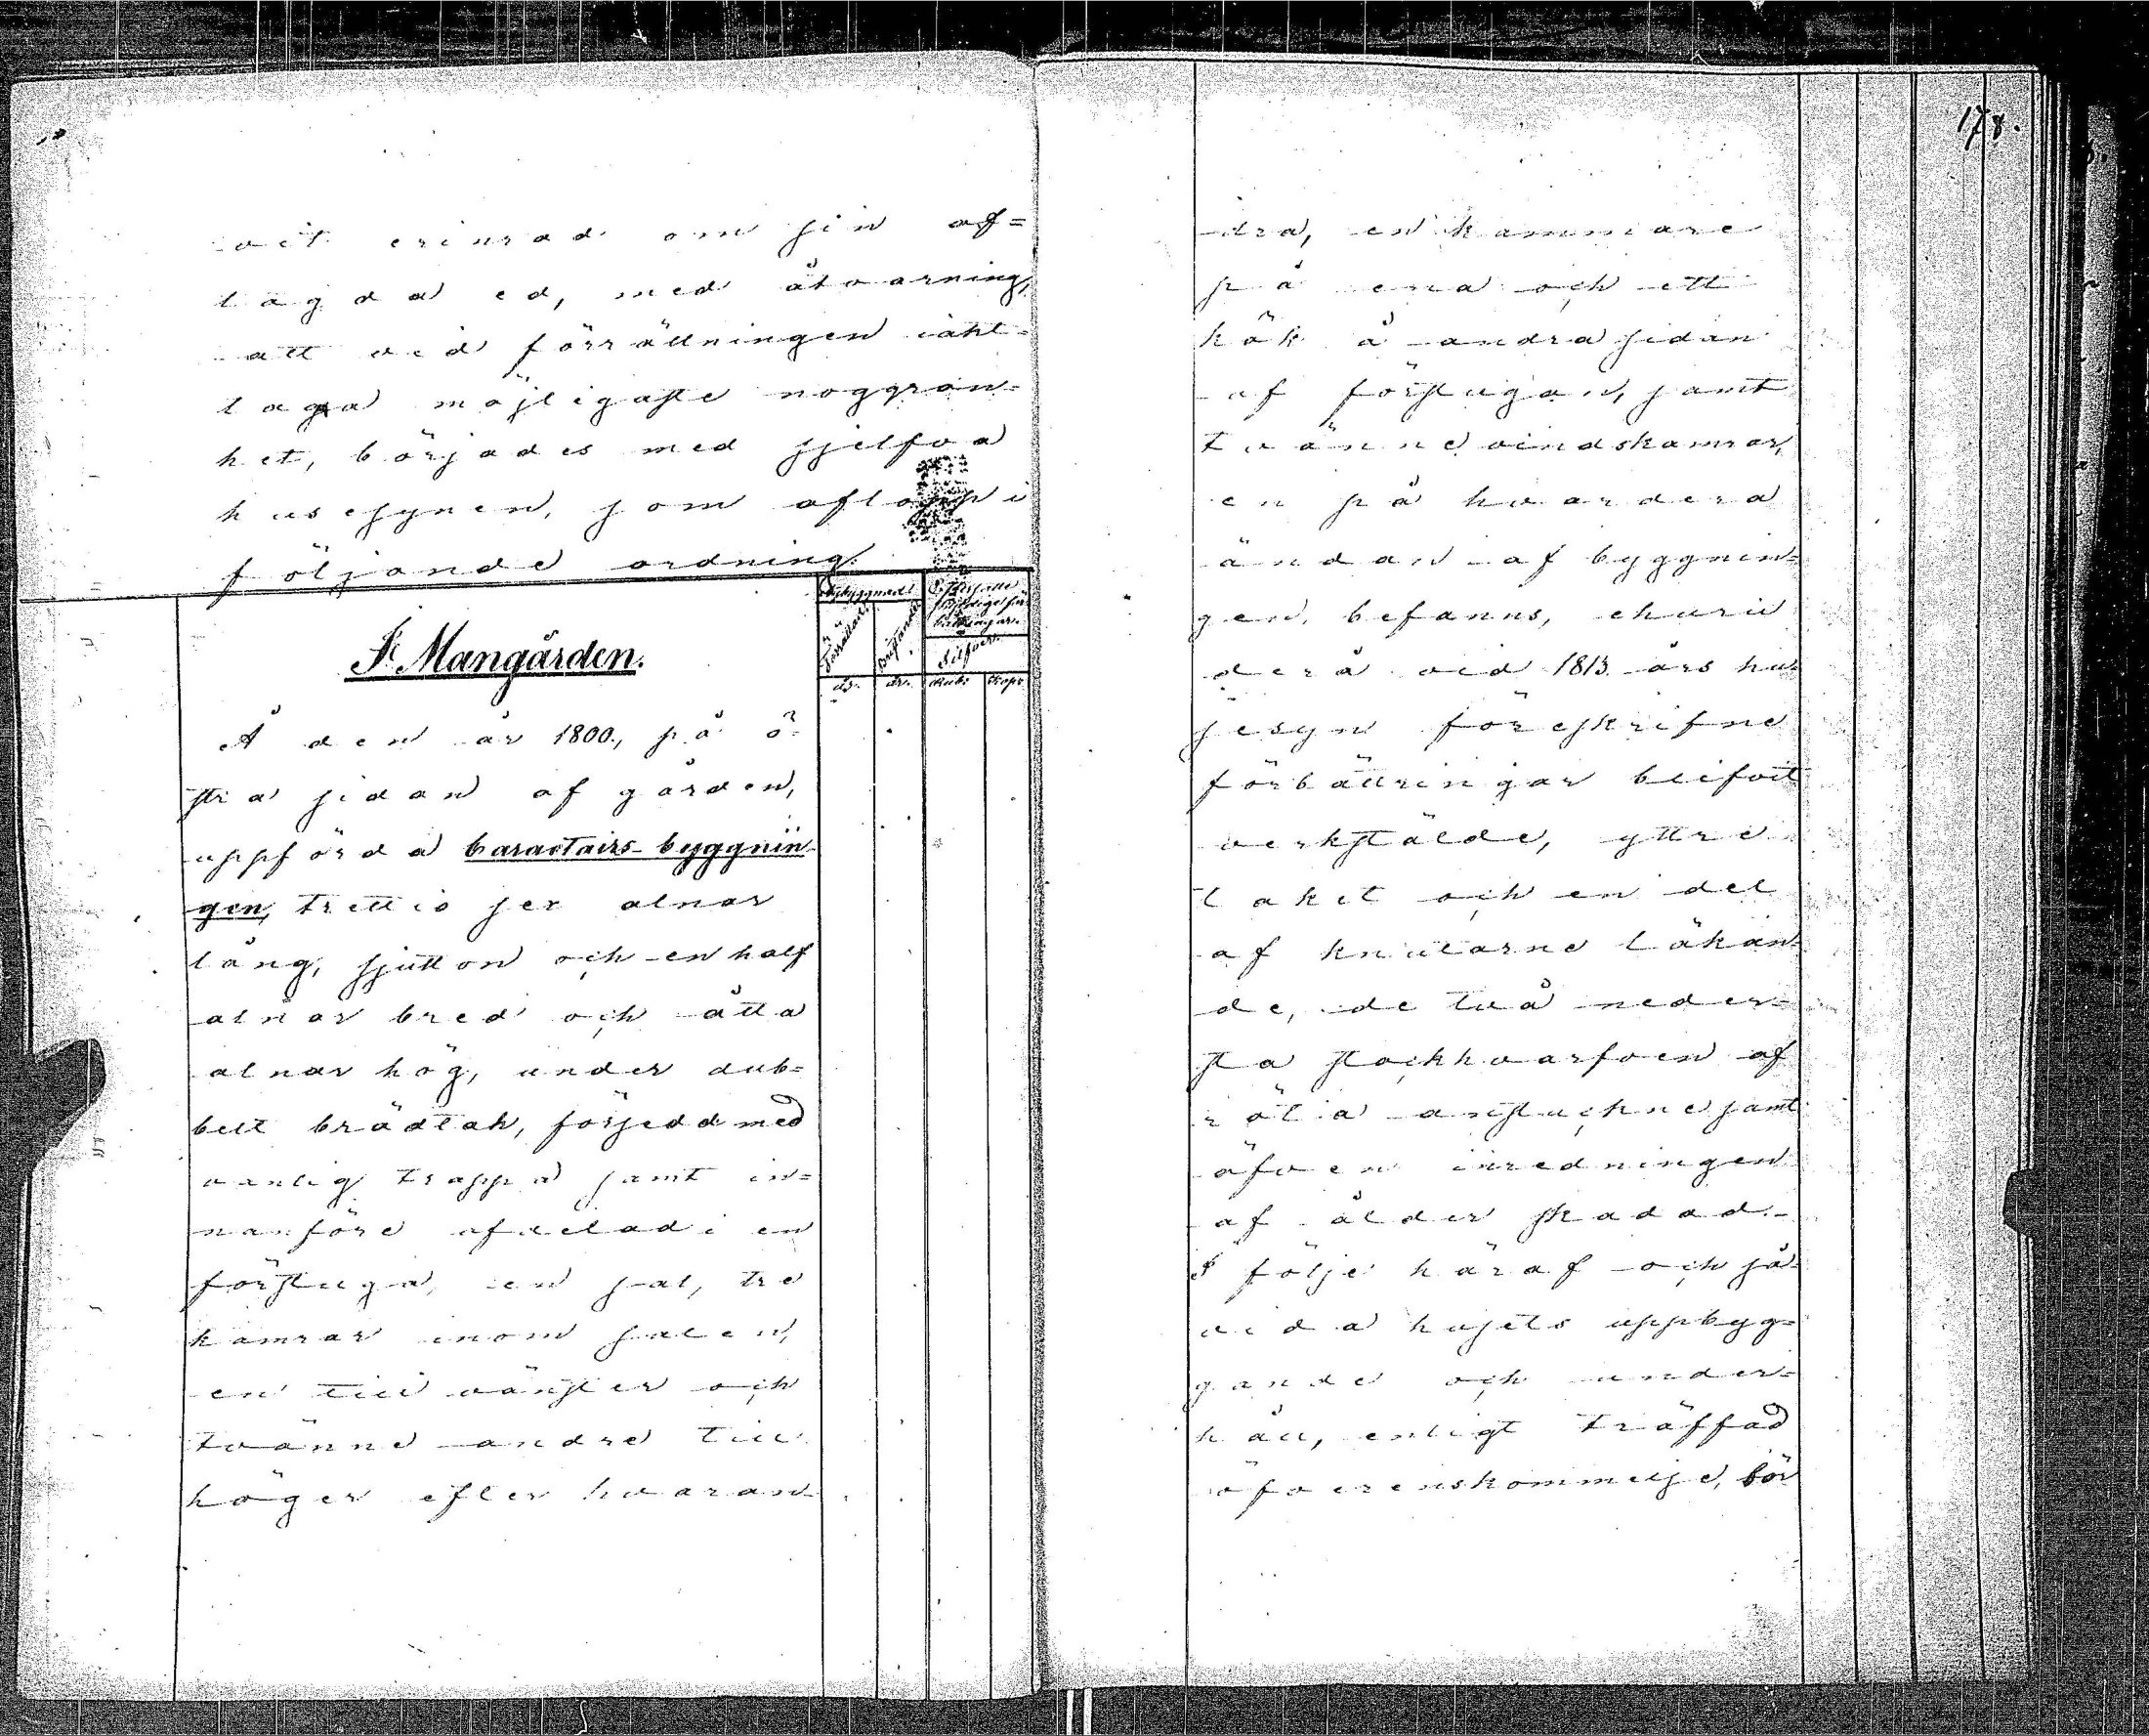 vit erinrad om sin af=
lagda ed, med åtvarning,
att vid förrättningen iakt-
taga möjligaste noggran-
het, börjades med sjelfva
husesynen, som aflopp i
följande ordning.
Nybyggnad.
Försutten
Bristande
Silfver.
år. år. Rub: Kop:
I. Mangården.
Å den år 1800, på ö-
stra sidan af gården,
uppförda karactairs-byggnin-
gen, trettio sex alnar
lång, sjutton och en half
alnar bred och åtta
alnar hög, under dub=
belt brädtak, försedd med
vanlig trappa samt in=
nanföre afdelad i en
förstuga, en sal, tre
kamrar inom salen,
en till vänster och
tvänne andre till
höger efter hvaran-
178.
dra, en kammare
på ena och ett
kök å andra sidan
af förstugan, samt
tvänne vindskamrar,
en på hvardera
ändan af byggnin=
gen, befanns, ehuru
derå vid 1813 års hu-
sesyn föreskrifne
förbättringar blifvit
verkstälde, yttre
taket och en del
af knutarne läkan-
de, de två neder-
sta stockhvarfven af
röta anstuckne samt
äfven inredningen
af ålder skadad.-
I följe häraf och så-
vida husets uppbyg=
gande och under-
håll, enligt träffad
öfverenskommelse, bör